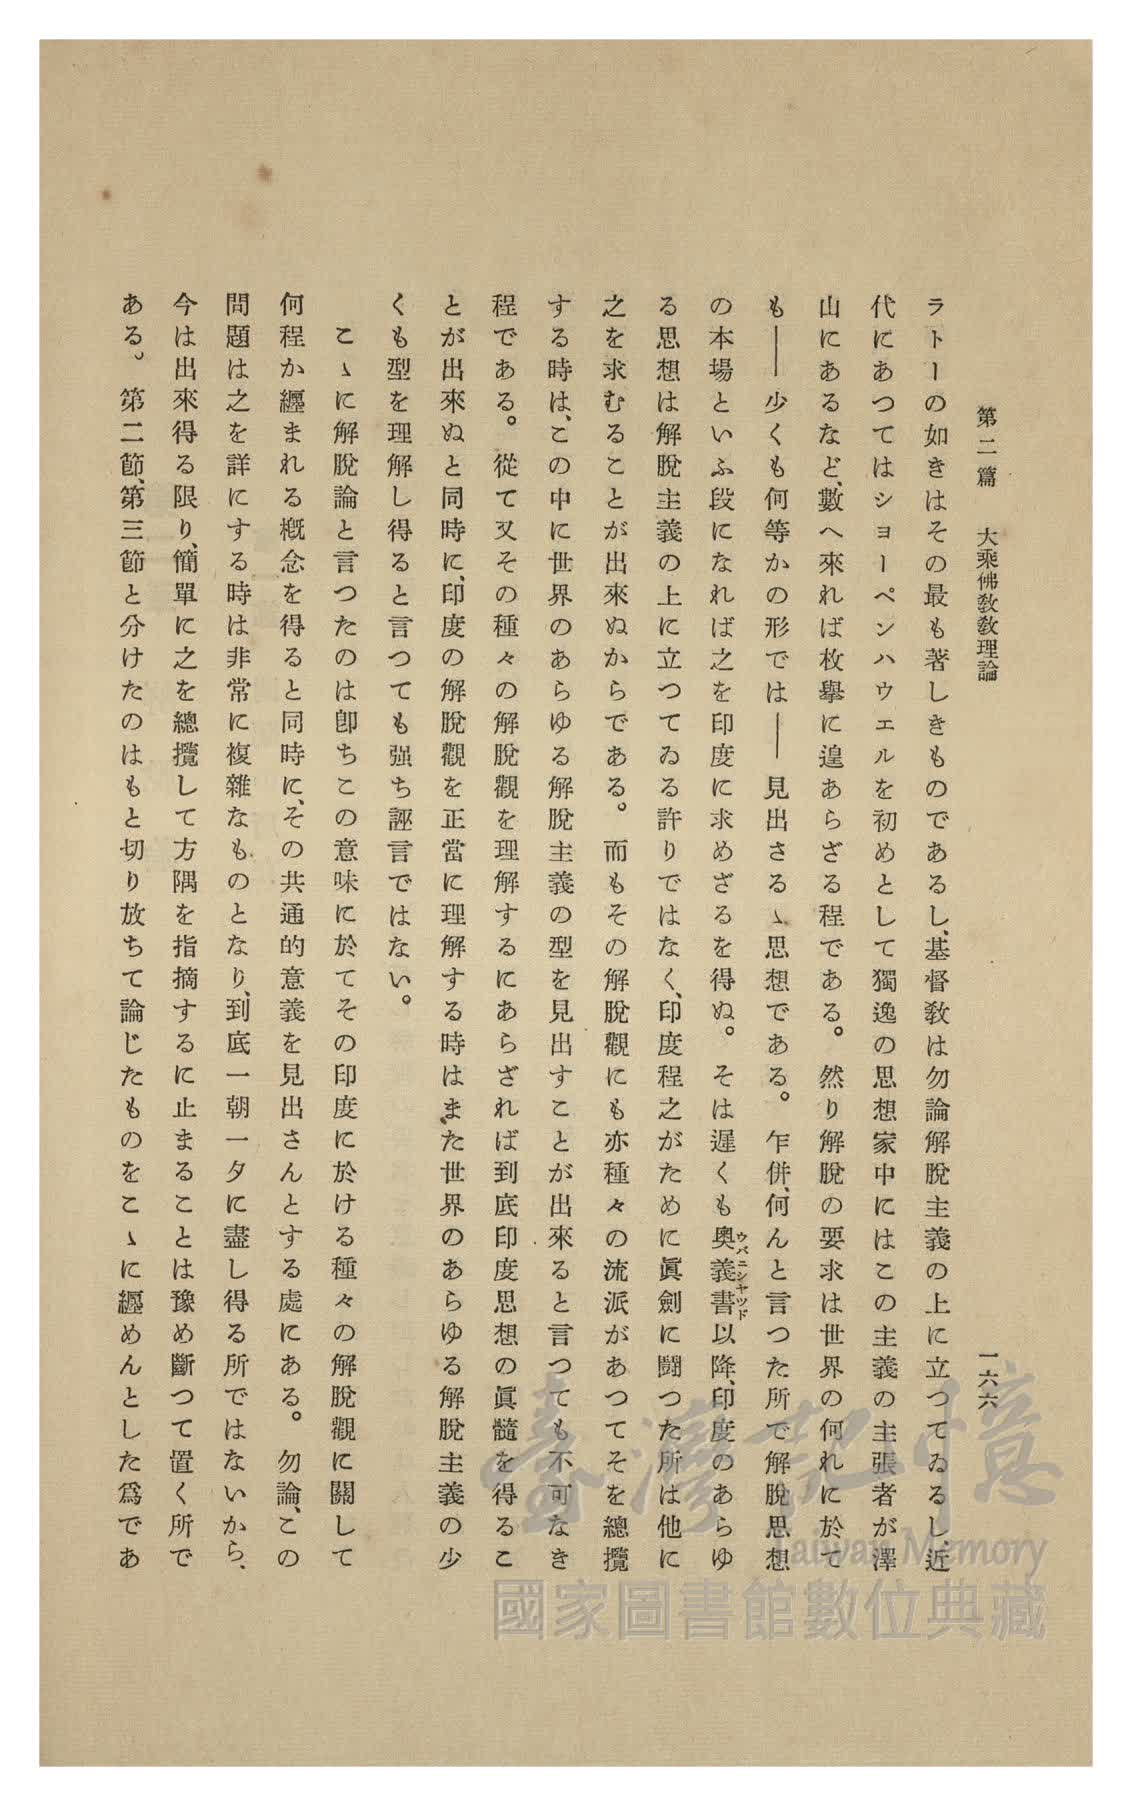 第二篇 大乘佛敎敎理論 一六六
ラトーの如きはその最も著しきものであるし、基督敎は勿論解脫主義の上に立つてゐるし近
代にあつてはショーペンハウエルを初めとして獨逸の思想家中にはこの主義の主張者が澤
山にあるなど、數へ來れば枚擧に遑あらざる程である。然り解脫の要求は世界の何れに於て
も――少くも何等かの形では――見出さるゝ思想である。乍併、何んと言つた所で解脫思想
の本場といふ段になれば之を印度に求めざるを得ぬ。そは遲くも奧義書ウパニシャッド以降、印度のあらゆ
る思想は解脫主義の上に立つてゐる許りではなく、印度程之がために眞劍に鬪つた所は他に
之を求むることが出來ぬからである。而もその解脫觀にも亦種々の流派があつてそを總攬
する時は、この中に世界のあらゆる解脫主義の型を見出すことが出來ると言つても不可なき
程である。從て又その種々の解脫觀を理解するにあらざれば到底印度思想の眞髓を得るこ
とが出來ぬと同時に、印度の解脫觀を正當に理解する時はまた世界のあらゆる解脫主義の少
くも型を理解し得ると言つても强ち誣言ではない。
こゝに解脫論と言つたのは卽ちこの意味に於てその印度に於ける種々の解脫觀に關して
何程か纒まれる槪念を得ると同時に、その共通的意義を見出さんとする處にある。勿論、この
問題は之を詳にする時は非常に複雜なものとなり、到底一朝一夕に盡し得る所ではないから、
今は出來得る限り、簡單に之を總攬して方隅を指摘するに止まることは豫め斷つて置く所で
ある。第二節、第三節と分けたのはもと切り放ちて論じたものをこゝに纒めんとした爲であ
臺灣記憶
Taiwan Memory
國家圖書館數位典藏